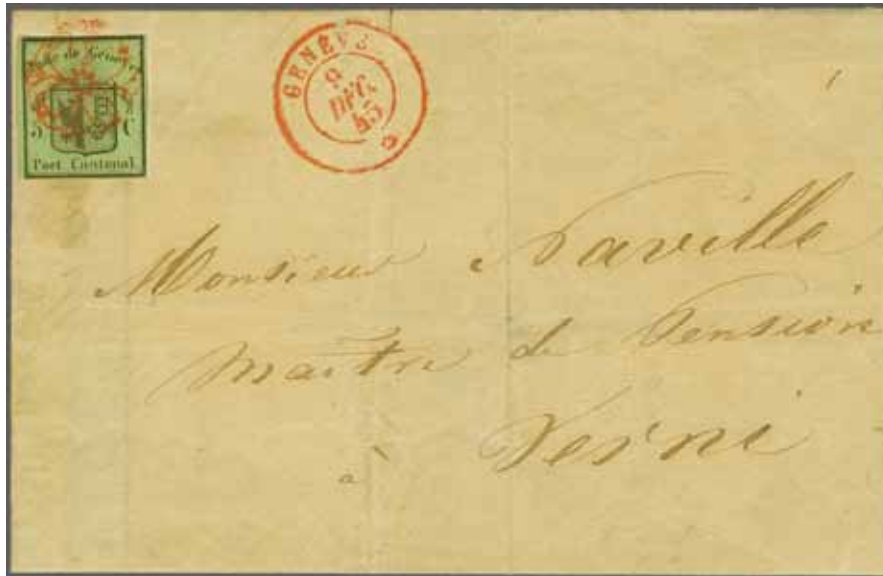 Poste de Genève
5 C
Port Cantonal
GENÈVE
9
DEC.
45
Monsieur Naville
Maître de Pension
à Verni